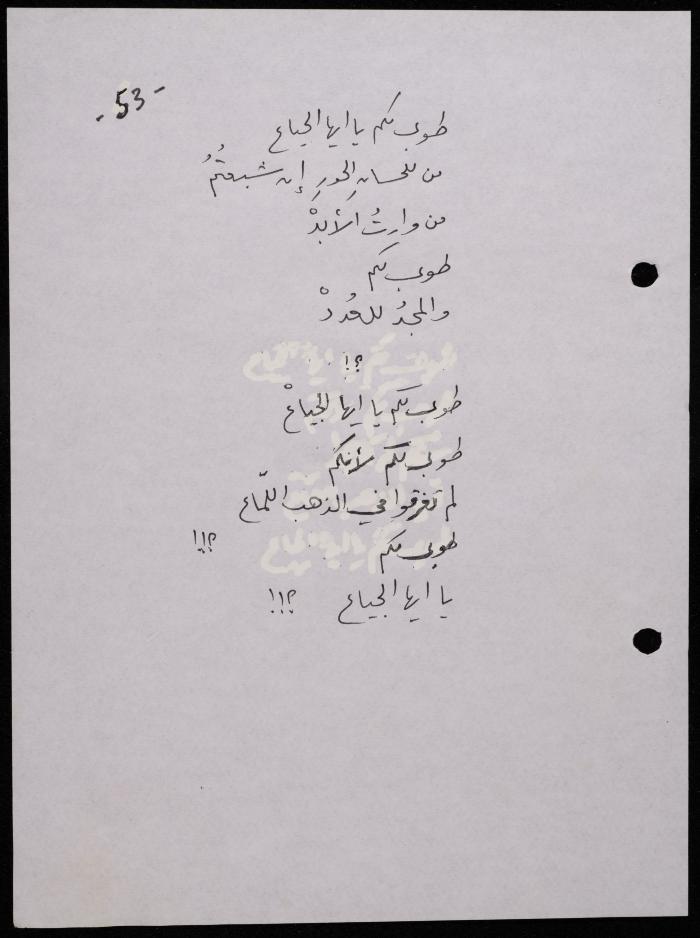 - 53 -
طوبى لكم يا ايها الجياع
من للحسانِ الحورِ إن شبعتُمُ
من وارثُ الأبدْ
طوبى لكم
والمجدُ للعُددْ
؟!
طوبى لكم يا ايها الجياعْ
طوبى لكم لأنكم
لم تغرقوا في الذهب اللّماع
طوبى لكم ؟!!
يا ايها الجياع ؟!!